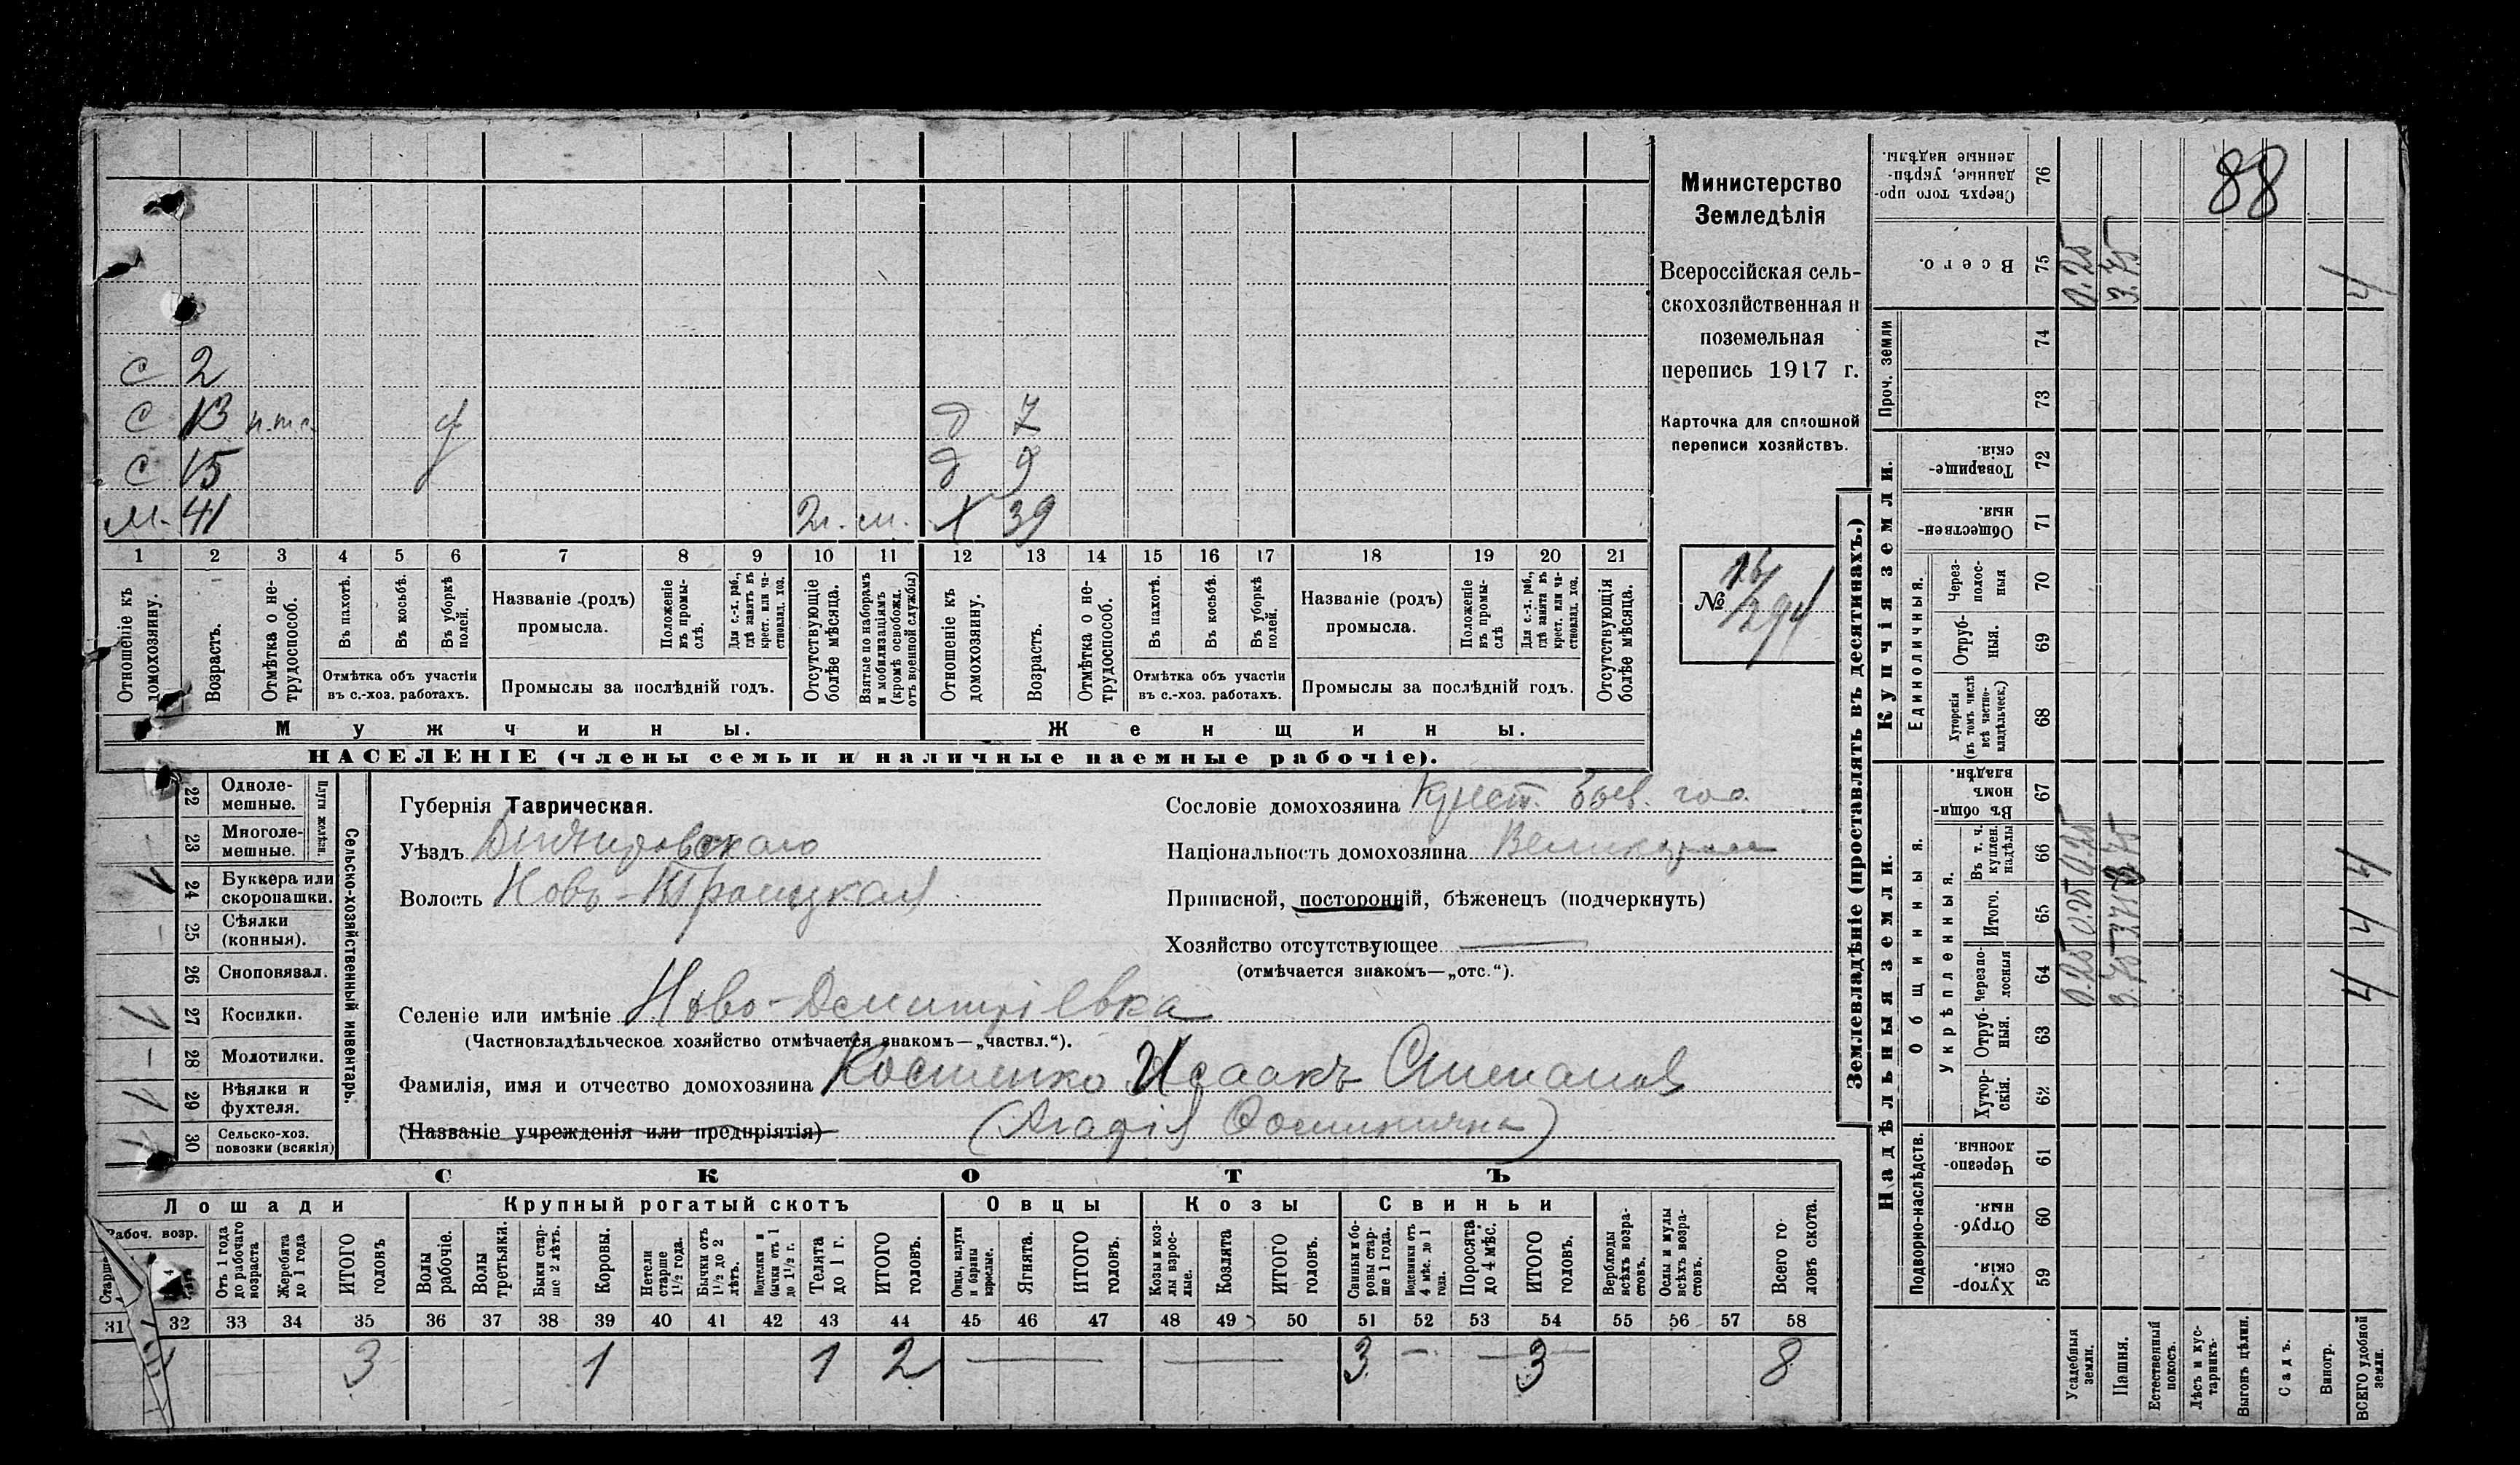 88
Министерство
Земледѣлія
Всероссійская сель-
скохозяйственная и
поземельная
перепись 1917 г.
Карточка для сплошной
переписи хозяйствъ.
№ 16/294
с 2
с 13 д 7
с 15 д 9
м. 41 м. 39
1 2 3 4 5 6 7 8 9 10 11 12 13 14 15 16 17 18 19 20 21
Отношеніе къ домохозяину.
Возрастъ.
Отмѣтка о не-трудоспособ.
Въ пахотѣ.
Въ косьбѣ.
Въ уборкѣ полей.
Отмѣтка объ участіи
въ с.-хоз. работахъ.
Названіе (родъ)
промысла.
Положеніе въ промы-слѣ.
Для с.-х. раб., гдѣ занятъ въ крест. или ча-стновлад. хоз.
Промыслы за послѣдній годъ.
Отсутствующіе болѣе мѣсяца.
Взятые по наборамъ и мобилизаціямъ (кромѣ освобожд. отъ военной службы)
Отношеніе къ домохозяину.
Возрастъ.
Отмѣтка о не-трудоспособ.
Въ пахотѣ.
Въ косьбѣ.
Въ уборкѣ полей.
Отмѣтка объ участіи
въ с.-хоз. работахъ.
Названіе (родъ)
промысла.
Положеніе въ промы-слѣ
Для с.-х. раб., гдѣ занята въ крест. или ча-стновлад. хоз.
Промыслы за послѣдній годъ.
Отсутствующія болѣе мѣсяца.
Мужчины. Женщины.
НАСЕЛЕНІЕ (члены семьи и наличные наемные рабочіе).
Сельско-хозяйственный инвентарь.
Плуги желѣзн.
22 Одноле-мешные.
23 Многоле-мешные.
24 Буккера или скоропашки.
25 Сѣялки (конныя).
26 Сноповязал.
27 Косилки.
28 Молотилки.
29 Вѣялки и фухтеля.
30 Сельско-хоз. повозки (всякія)
Губернія Таврическая.
Уѣздъ Днѣпровскаго
Волость Ново-Троицкая
Селеніе или имѣніе Ново-Дмитріевка
(Частновладѣльческое хозяйство отмѣчается знакомъ—„частвл.“).
Фамилія, имя и отчество домохозяина Костенко Исаакъ Степановъ
(Названіе учрежденія или предпріятія)
Сословіе домохозяина Крест.
Національность домохозяина Великор
Приписной, посторонній, бѣженецъ (подчеркнуть)
Хозяйство отсутствующее —
(отмѣчается знакомъ—„отс.“).
СКОТЪ
Лошади Крупный рогатый скотъ Овцы Козы Свиньи
Рабоч. возр.
Отъ 1 года до рабочаго возраста
Жеребята до 1 года
ИТОГО головъ
Волы рабочіе.
Волы третьяки.
Быки стар-ше 2 лѣтъ.
Коровы.
Нетели старше 1½ года.
Бычки отъ 1½ до 2 лѣтъ.
Подтелки и бычки отъ 1 до 1½ г.
Телята до 1 г.
ИТОГО головъ.
Овцы, валухи и бараны взрослые.
Ягнята.
ИТОГО головъ.
Козы и коз-лы взрос-лые.
Козлята
ИТОГО головъ.
Свиньи и бо-ровы стар-ше 1 года.
Подсвинки отъ 4 мѣс. до 1 года.
Поросята до 4 мѣс.
ИТОГО головъ.
Верблюды всѣхъ возра-стовъ.
Ослы и мулы всѣхъ возра-стовъ.
Всего го-ловъ скота.
31 32 33 34 35 36 37 38 39 40 41 42 43 44 45 46 47 48 49 50 51 52 53 54 55 56 57 58
3 1 1 2 3 3 8
Землевладѣніе (проставлять въ десятинахъ.)
Проч. земли
Купчія земли.
Единоличныя.
Надѣльныя земли.
Общинныя.
Укрѣпленныя.
Подворно-наслѣдств.
Сверхъ того про-данные, укрѣп-ленные надѣлы. 76
Всего. 75 0.25 3.75 4
74
73
Товарище-скія. 72
Обществен-ныя. 71
Через-полос-ныя 70
Отруб-ныя. 69
Хуторскія (въ томъ числѣ всѣ частно-владѣльческ.) 68
Въ общи-номъ владѣн. 67
Въ т. ч. куплен. надѣлы 66 0.25 3.75 4
Итого. 65 0.25 4
Черезпо-лосныя 64 0.25 3.75 4
Отруб-ныя. 63
Хутор-скія. 62
Черезпо-лосныя. 61
Отруб-ныя. 60
Хутор-скія. 59
Усадебныя земли.
Пашня.
Естественный покосъ.
Лѣсъ и кус-тарникъ.
Выгонъ цѣлин.
Садъ.
Виногр.
ВСЕГО удобной земли.